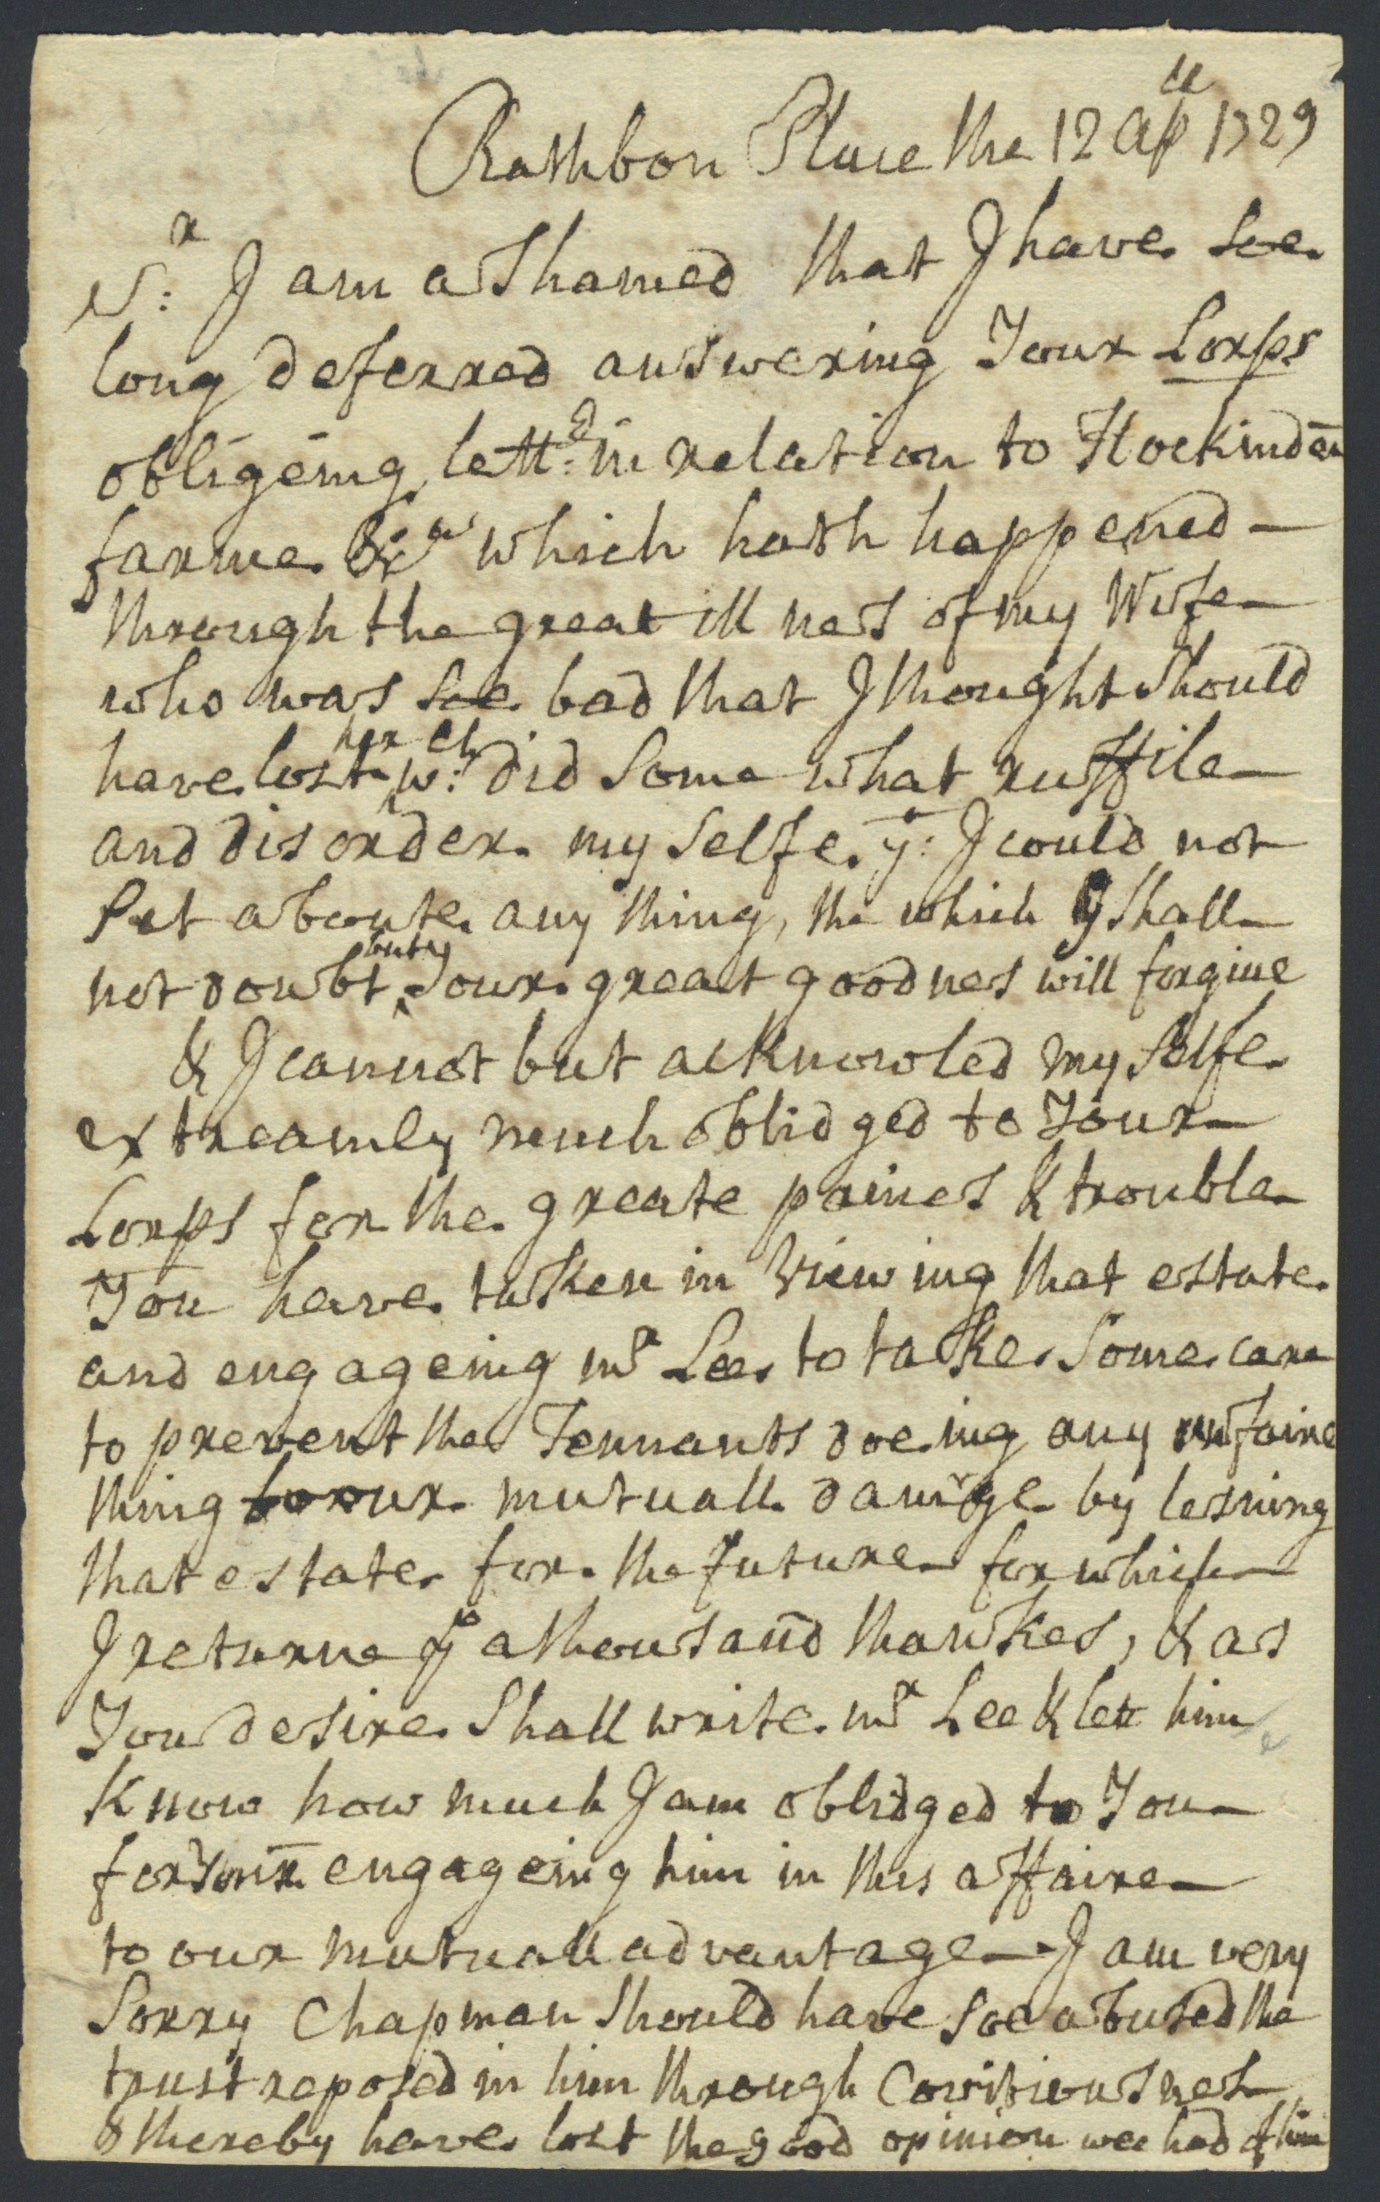 Rathbon Place the 12 Apll 1729
Sr: I am ashamed that I have soe
long deferred answering Your Lorps
obligeing lettr: in relation to Hockinden
farme &ca which hath happened -
through the great ill nes of my Wife
who was soe bad that I thought should
have lost her wch: did some what ruffile
and disorder my selfe yt: I could not
set aboute any thing, the which I shall
not doubt but yt Your great goodnes will forgive
& I cannot but acknowled my selfe
extreamly much oblidged to Your
Lorps for the greate paines & trouble
You have taken in Viewing that estate
and engageing mr Lee to take some care
to prevent the Tennants doeing any unfaire
thing to our mutuall damage by lesning
that estate for the future for which
I returne yo a thousand thankes, & as
You desire shall write mr Lee & lett him
Know how much I am oblidged to You
for Your engageing him in this affaire
to our mutuall advantage - I am very
sorry Chapman should have soe abused the
trust reposed in him through Covitiousnes
& thereby have lost the good opinion wee had of him